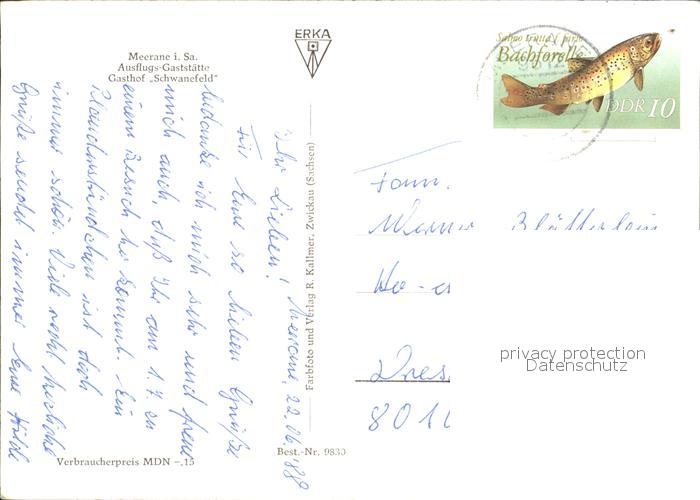 ERKA
Meerane i. Sa.
Ausflugs-Gaststätte
Gasthof „Schwanefeld"
Salmo trutta f. fario
Bachforelle
DDR 10
Meerane, 22.06.'88
Ihr Lieben!
Für Eure so lieben Grüße
bedanke ich mich sehr und freue
mich auch, daß Ihr am 1.7. zu
einem Besuch her kommt. Ein
Plauderstündchen ist doch
immer schön. Viele recht herzliche
Grüße sendet immer Eure
Fam.
Werner
Dres
801
privacy protection
Datenschutz
Farbfoto und Verlag R. Kallmer, Zwickau (Sachsen)
Verbraucherpreis MDN –,15
Best.-Nr. 9830